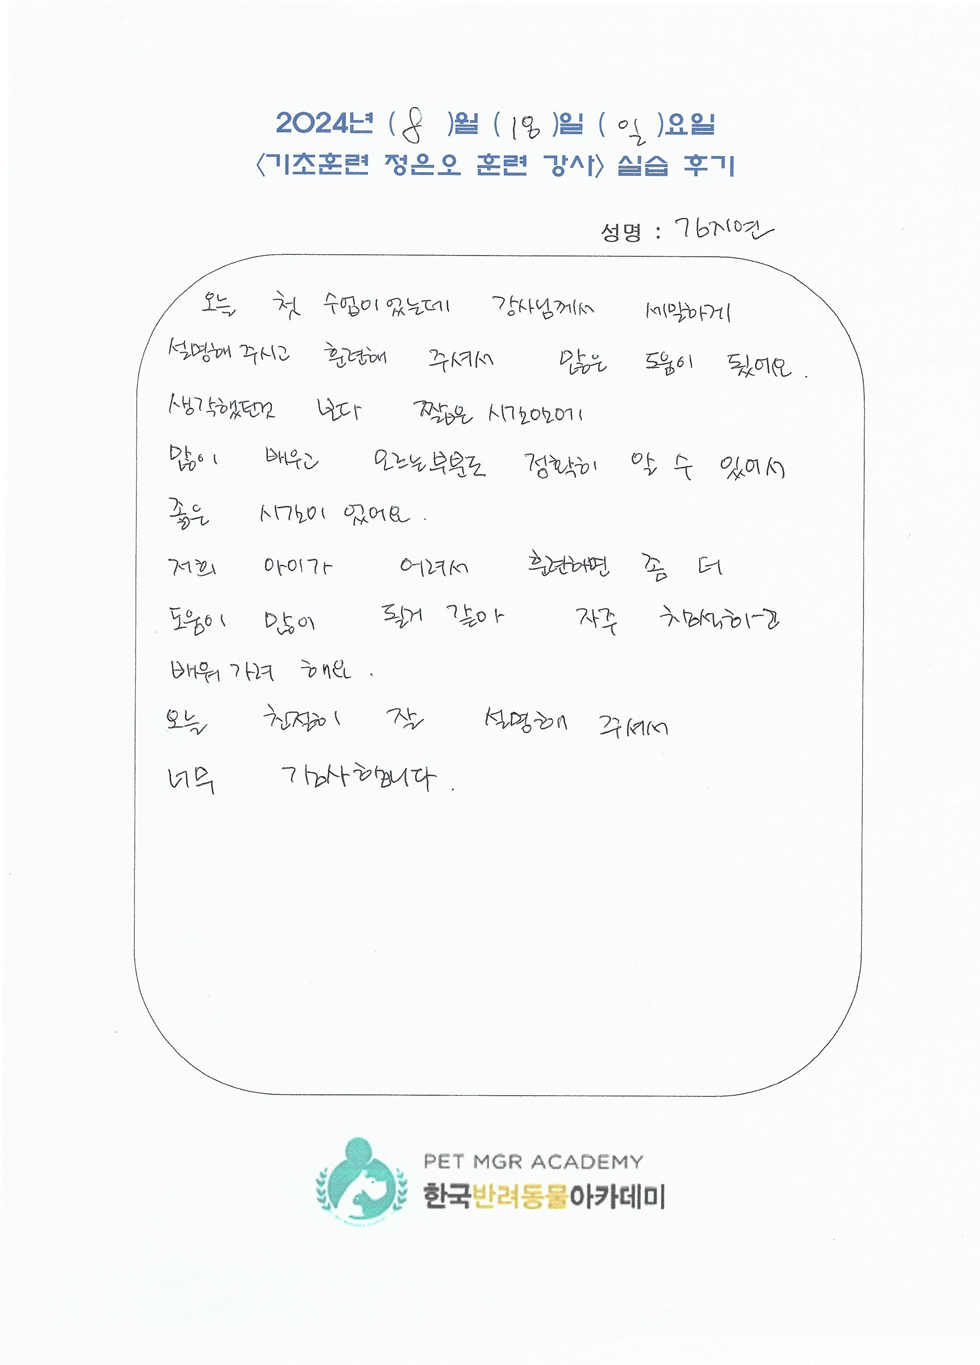 2024년 ( 8 )월 ( 18 )일 ( 일 )요일
<기초훈련 정은오 훈련 강사> 실습 후기
성명 : 김지연
오늘 첫 수업이었는데 강사님께서 세밀하게
설명해 주시고 훈련해 주셔서 많은 도움이 됬어요.
생각했던것 보다 짧은 시간이었는데
많이 배우고 모르는부분도 정확히 알 수 있어서
좋은 시간이 었어요.
저희 아이가 어려서 훈련하면 좀 더
도움이 많이 될거 같아 자주 참석하고
배워 가려 해요.
오늘 친절히 잘 설명해 주셔서
너무 감사합니다.
PET MGR ACADEMY
한국반려동물아카데미